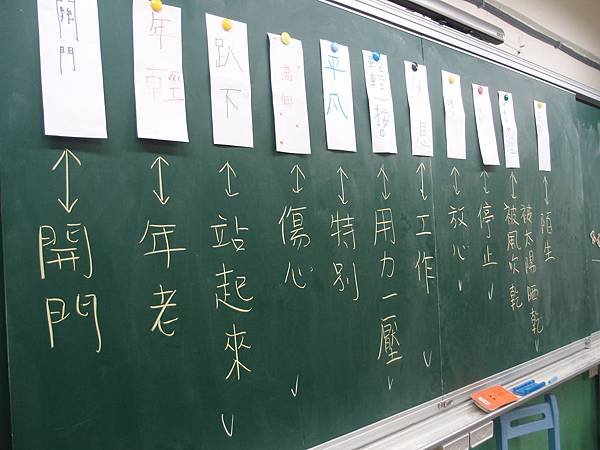 關門
年輕
趴下
高興
輕輕一按
休息
開門
年老
站起來
傷心
特別
用力一壓
工作
放心
停止
被風吹乾
被太陽晒乾
陌生